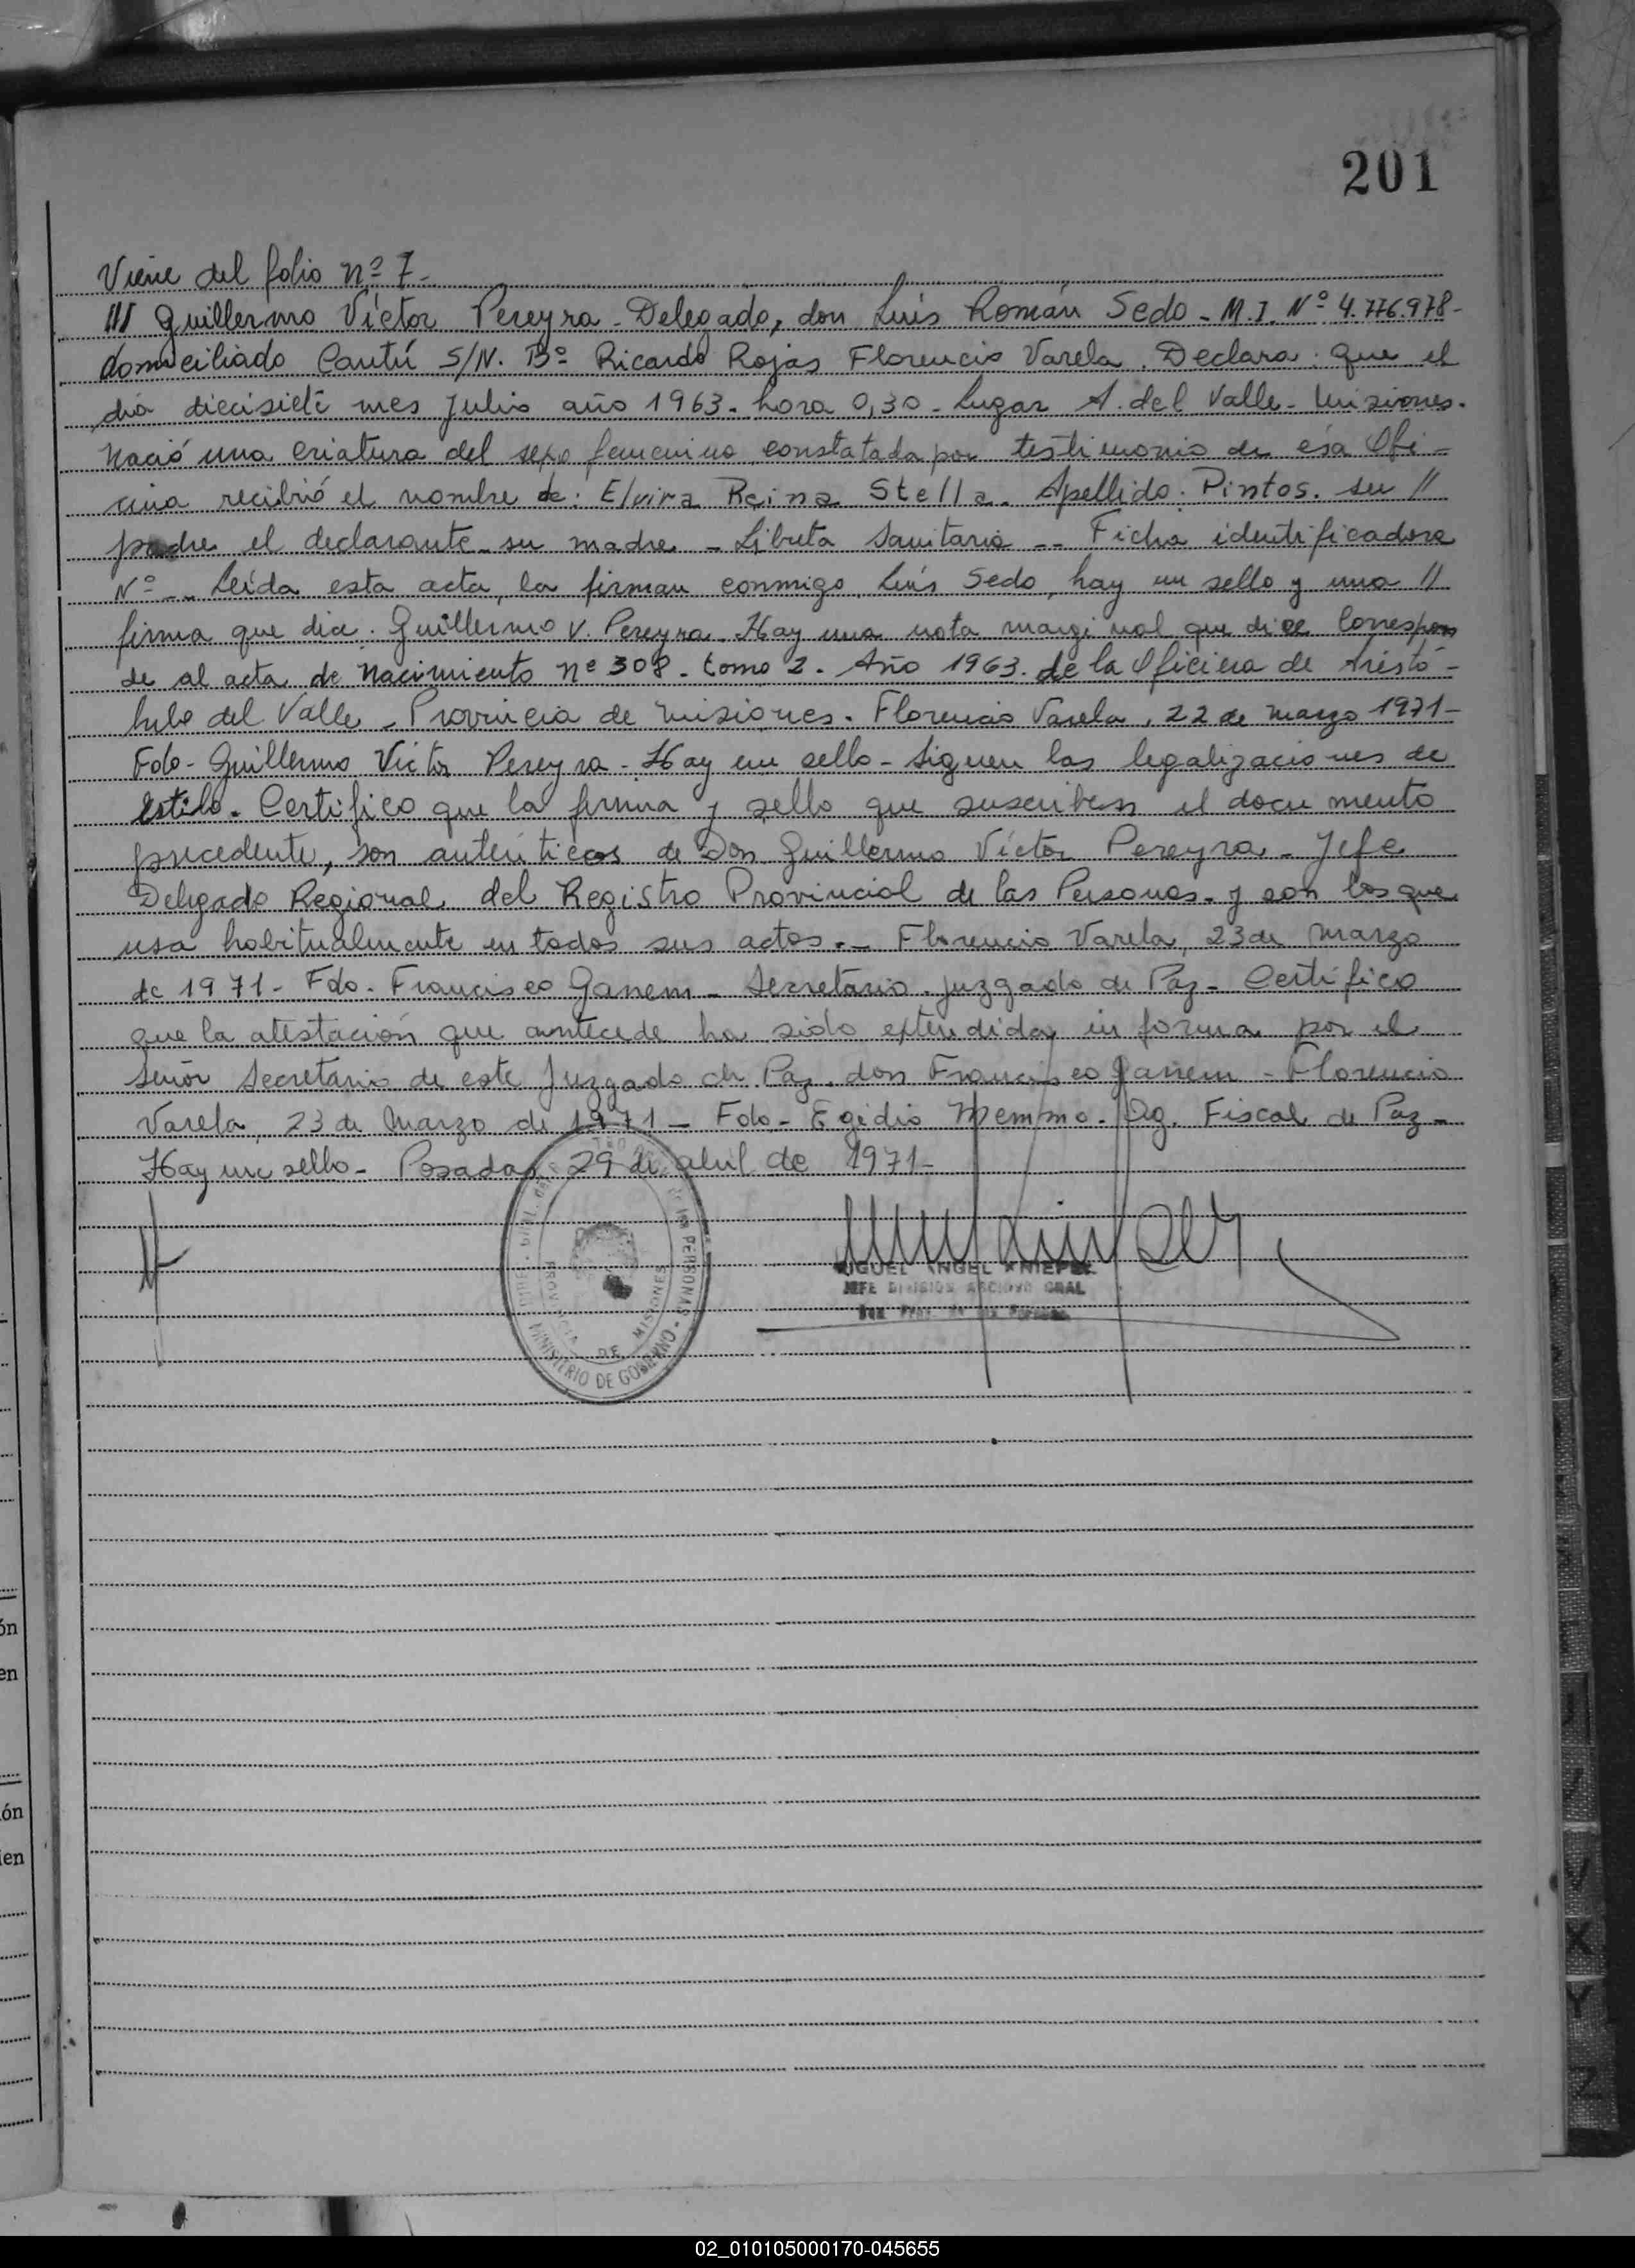 201
Viene del folio nº 7-
/// Guillermo Víctor Pereyra - Delegado, don Luis Román Sedo - M.I. Nº 4.776.978-
domiciliado Cantú S/N. Bº Ricardo Rojas Florencio Varela. Declara: que el
día diecisiete mes Julio año 1963. hora 0,30 - Lugar A. del Valle - Misiones.
Nació una criatura del sexo femenino constatada por testimonio de esa Ofi-
cina recibió el nombre de: Elvira Reina Stella. Apellido. Pintos. su //
padre el declarante - su madre - Libreta Sanitaria -- Ficha identificadora
Nº -- Leída esta acta, la firman conmigo, Luis Sedo, hay un sello y una //
firma que dice. Guillermo V. Pereyra. Hay una nota marginal que dice Correspon
de al acta de nacimiento nº 308 - tomo 2. Año 1963. de la Oficina de Aristó-
bulo del Valle - Provincia de Misiones. Florencio Varela, 22 de marzo 1971-
Fdo - Guillermo Víctor Pereyra - Hay un sello - Siguen las legalizaciones de
estilo. Certifico que la firma y sello que suscriben el documento
precedente, son auténticos de Don Guillermo Víctor Pereyra - Jefe
Delegado Regional del Registro Provincial de las Personas - y son los que
usa habitualmente en todos sus actos. - Florencio Varela, 23 de marzo
de 1971 - Fdo - Francisco Ganem - Secretario. juzgado de Paz - Certifico
que la atestación que antecede ha sido extendida en forma por el
señor Secretario de este Juzgado de Paz. don Francisco Ganem - Florencio
Varela, 23 de Marzo de 1971 - Fdo - Egidio Memmo. Ag. Fiscal de Paz -
Hay un sello - Posadas, 29 de abril de 1971-
MIGUEL ANGEL KNIEPEL
JEFE DIVISION ARCHIVO GRAL
de las PERSONAS - MINISTERIO DE GOBIERNO
PROVINCIA DE MISIONES
ón
en
ón
ien
V
X
Y
Z
02_010105000170-045655